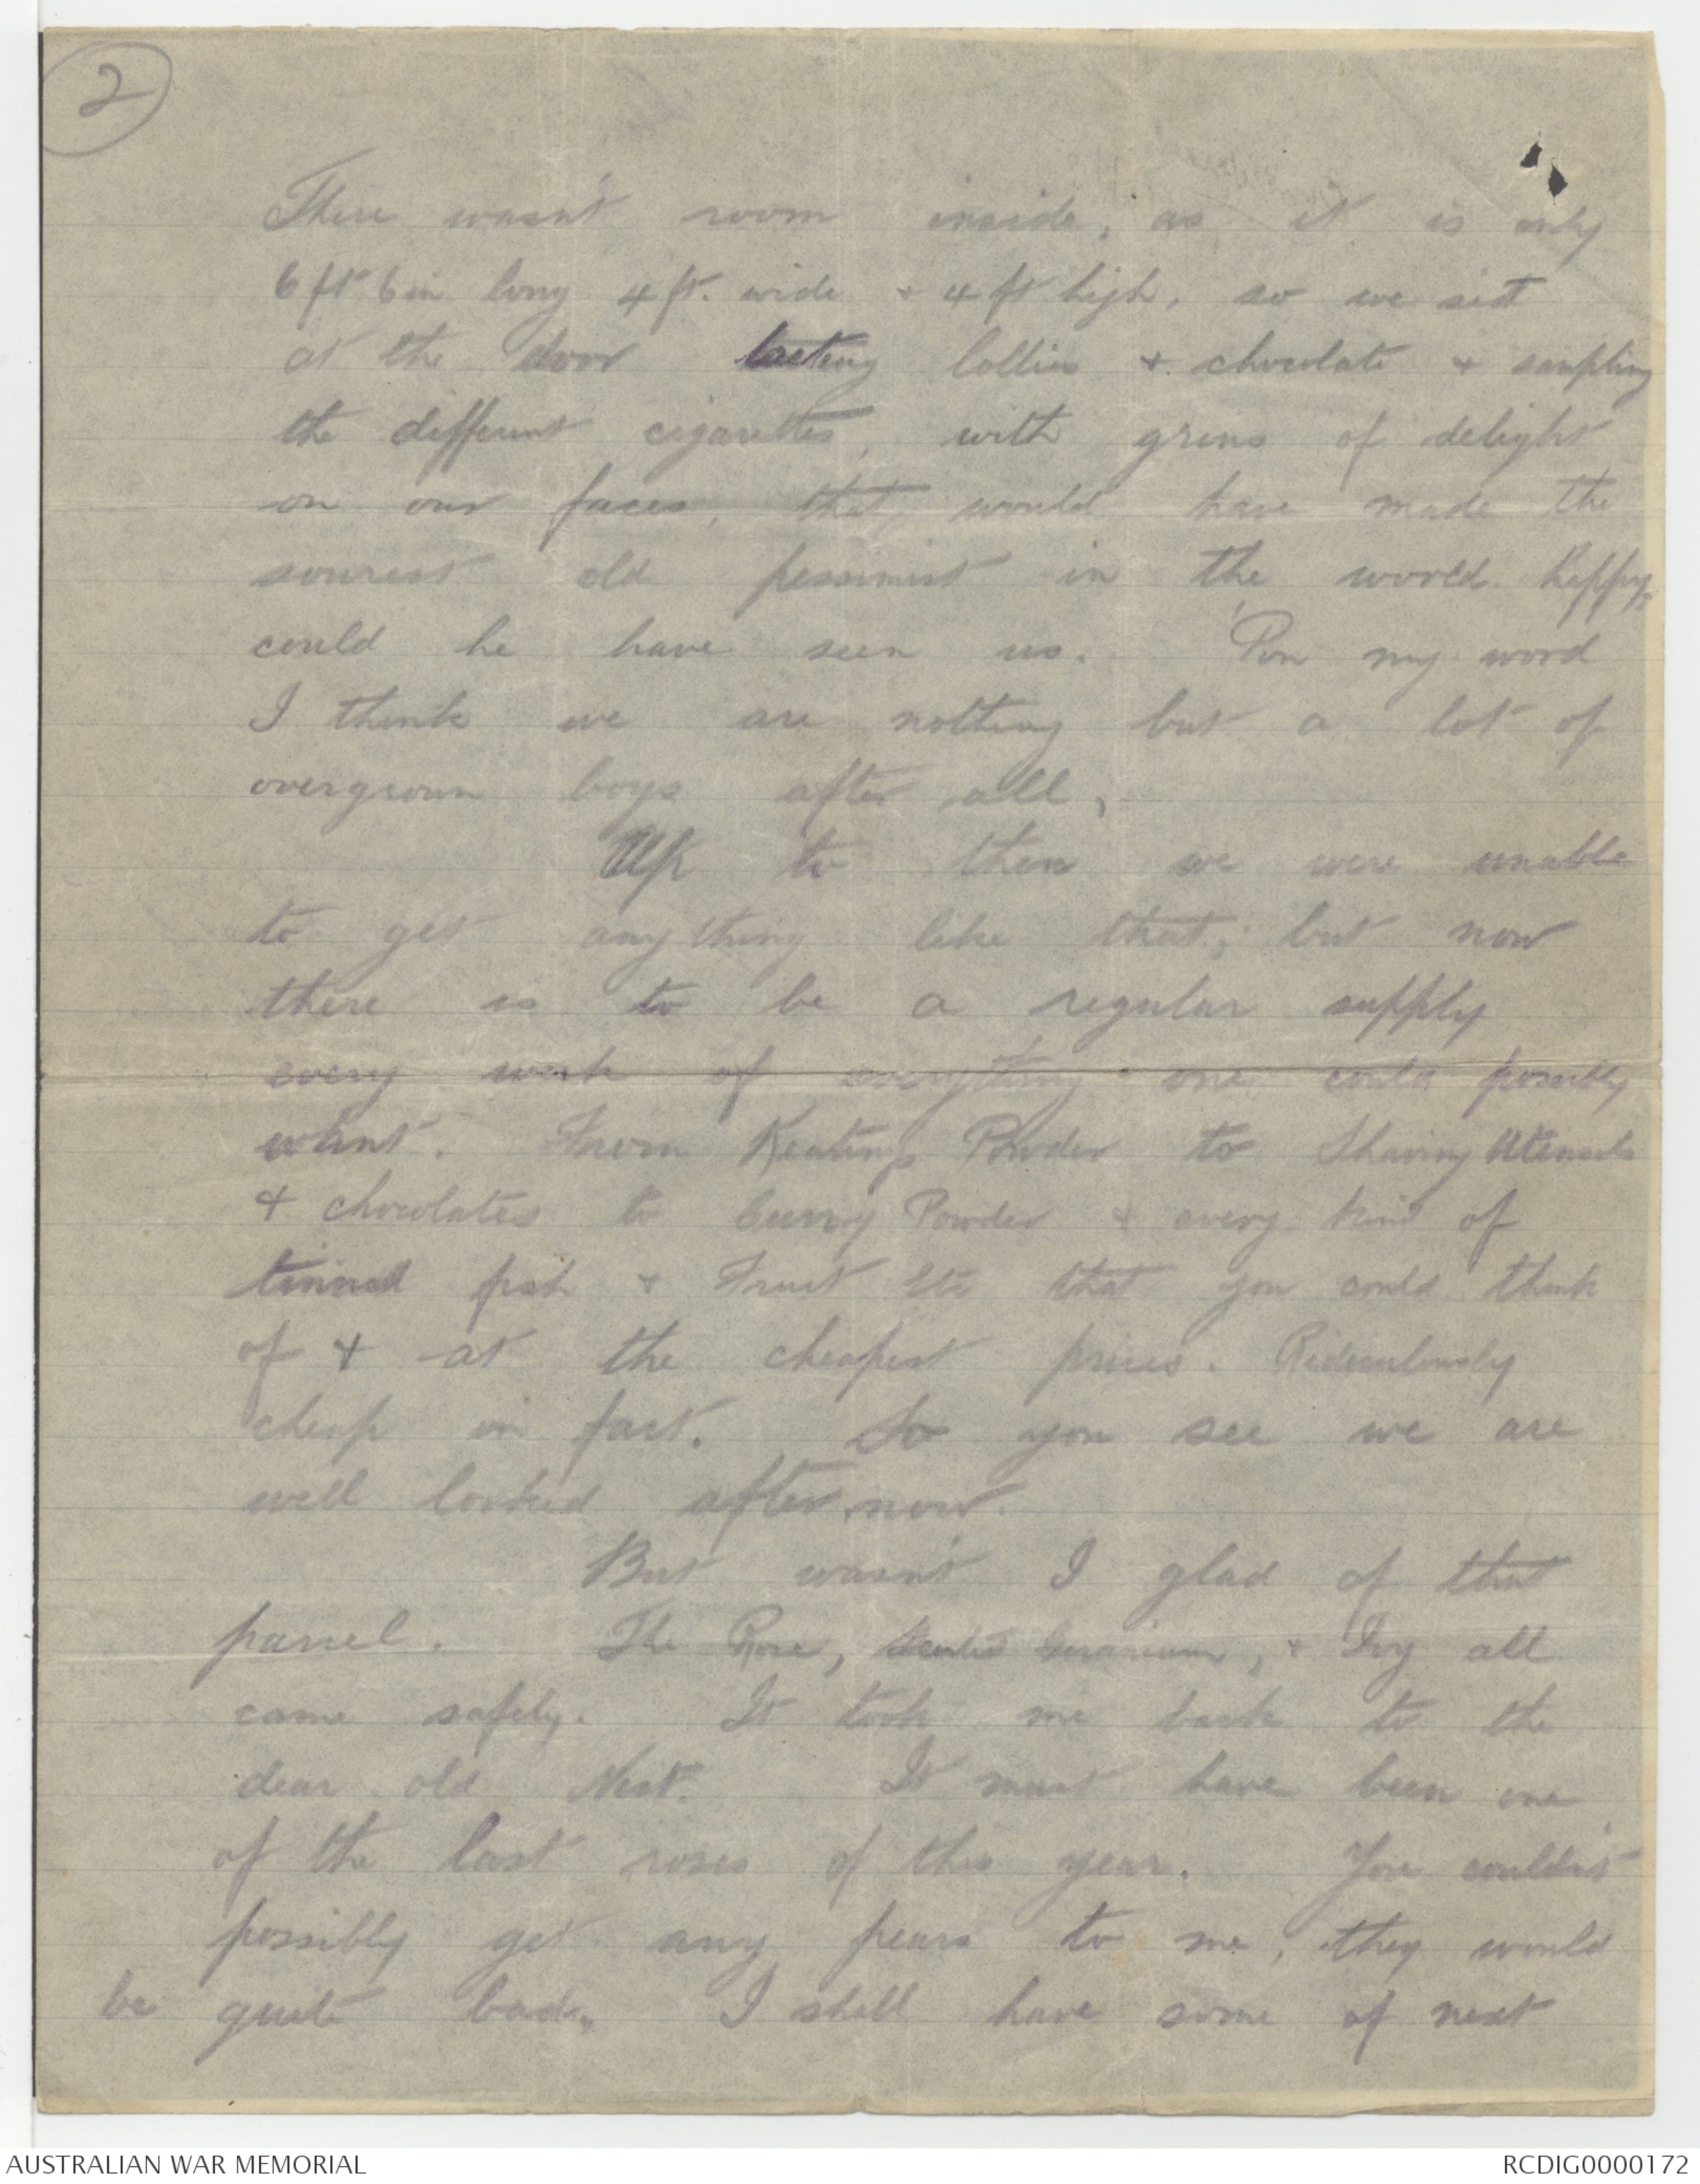 2
There wasn't room inside, as it is only
6 ft 6 in long 4 ft. wide + 4 ft high, so we sat
at the door tasting lollies + chocolate + sampling
the different cigarettes, with grins of delight
on our faces, that would have made the
sourest old pessimist in the world happy,
could he have seen us. 'Pon my word
I think we are nothing but a lot of
overgrown boys after all,
Up to then we were unable
to get anything like that; but now
there is to be a regular supply
every week of everything one could possibly
want. From Keatings Powder to Shaving Utensils
+ chocolates to Curry Powder + every kind of
tinned fish + Fruit etc that you could think
of + at the cheapest prices. Ridiculously
cheap in fact. So you see we are
well looked after now.
But wasn't I glad of that
parcel. The Rose, Scented Geranium, + Ivy all
came safely. It took me back to the
dear old Nest. It must have been one
of the last roses of this year. You couldn't
possibly get any pears to me, they would
be quite bad. I shall have some of next
AUSTRALIAN WAR MEMORIAL
RCDIG0000172